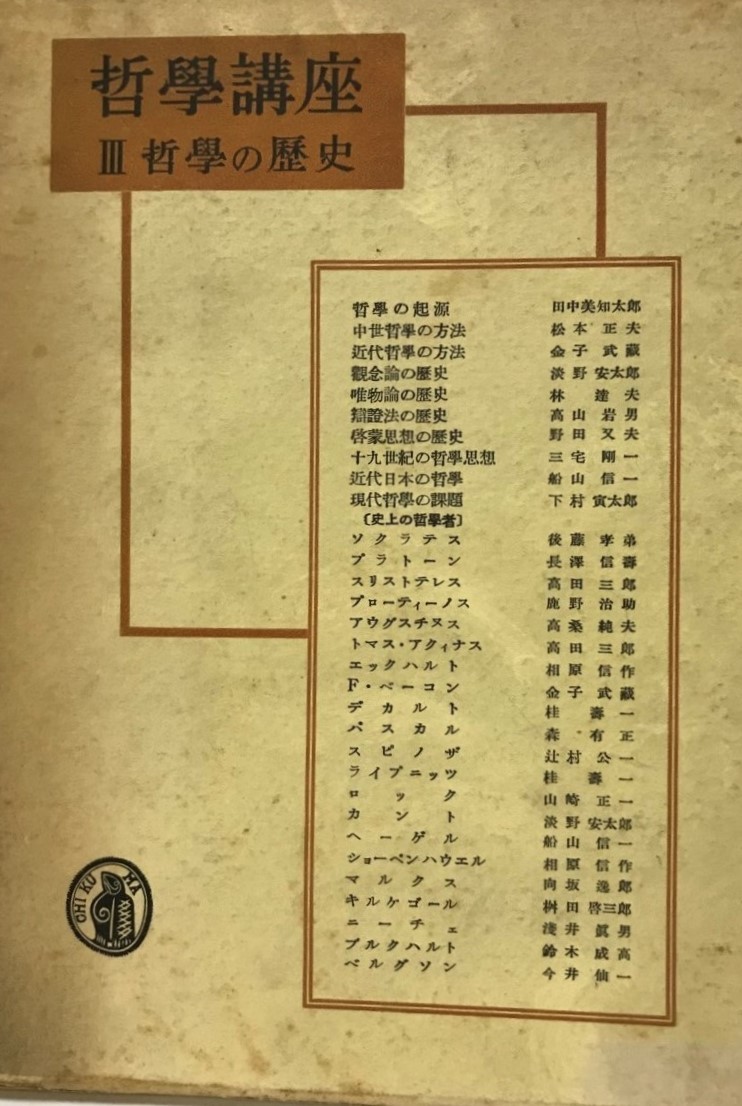 哲學講座
III 哲學の歷史
哲學の起源 田中美知太郎
中世哲學の方法 松本正夫
近代哲學の方法 金子武藏
觀念論の歷史 淡野安太郎
唯物論の歷史 林達夫
辯證法の歷史 高山岩男
啓蒙思想の歷史 野田又夫
十九世紀の哲學思想 三宅剛一
近代日本の哲學 船山信一
現代哲學の課題 下村寅太郎
〔史上の哲學者〕
ソクラテス 後藤孝弟
プラトーン 長澤信壽
スリストテレス 高田三郎
プローティーノス 鹿野治助
アウグスチヌス 高桑純夫
トマス・アクィナス 高田三郎
エックハルト 相原信作
F・ベーコン 金子武藏
デカルト 桂壽一
パスカル 森有正
スピノザ 辻村公一
ライプニッツ 桂壽一
ロック 山崎正一
カント 淡野安太郎
ヘーゲル 船山信一
ショーペンハウエル 相原信作
マルクス 向坂逸郎
キルケゴール 桝田啓三郎
ニーチェ 淺井眞男
ブルクハルト 鈴木成高
ベルグソン 今井仙一
CHIKUMA